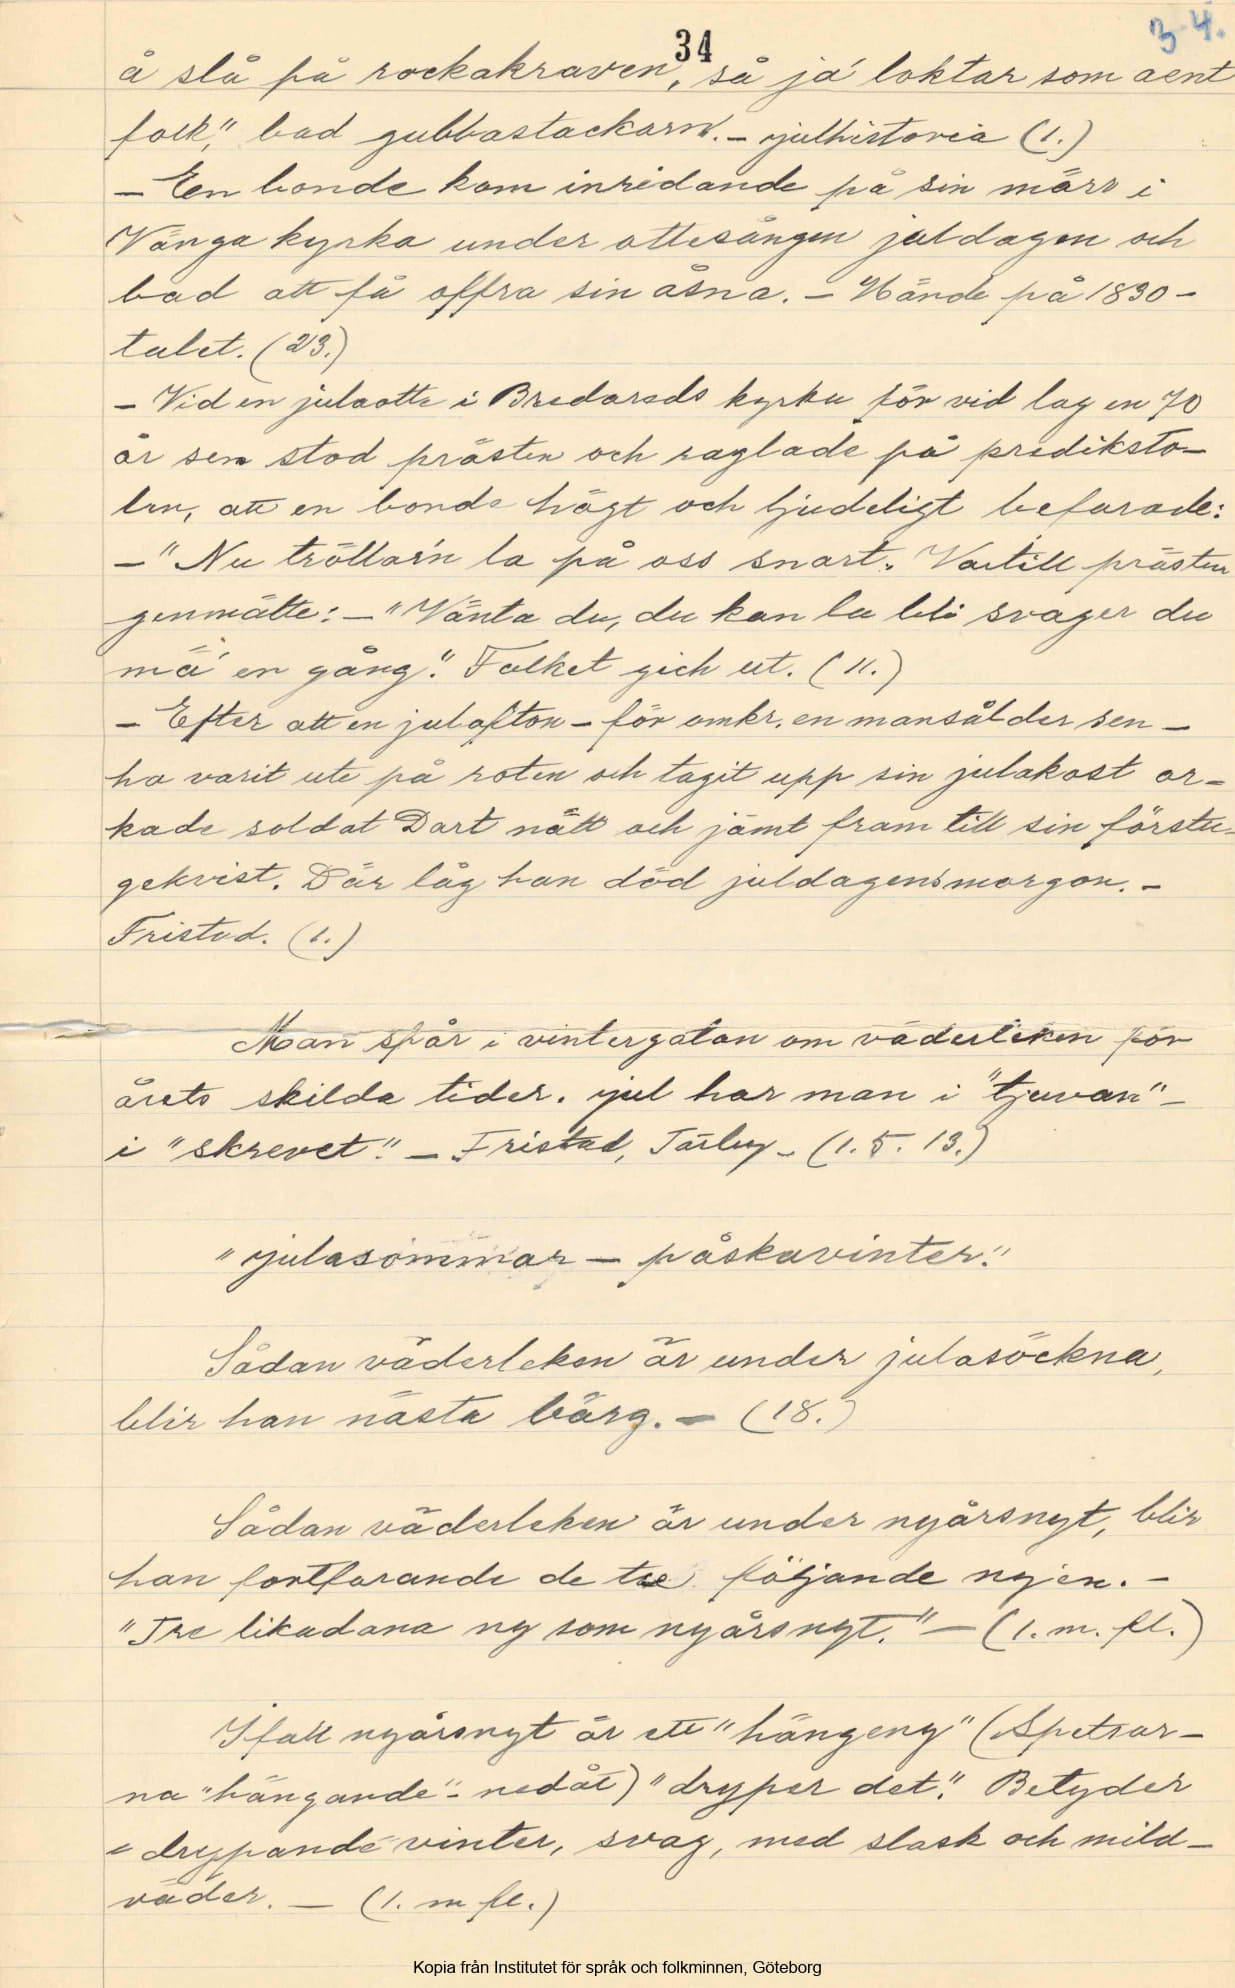 34
34.
å slå på rockakraven, så ja' loktar som aent
folk," bad gubbastackarn. - Julhistoria (1.)
- Een bonde kom inridande på sin märr i
Vånga kyrka under ottesången juldagen och
bad att få offra sin åsna. - Hände på 1830-
talet. (23.)
- Vid en julaotta i Bredareds kyrka för vid lag en 70
år sen stod prästen och raglade på prediksto-
len, att en bonde högt och ljudeligt befarade:
- "Nu tröllar'n la på oss snart. Vartill prästen
genmälte: - "Vänta du, du kan la bli svager du
mä' en gång." Folket gick ut. (11.)
- Efter att en julafton - för omkr. en mansålder sen -
ha varit ute på roten och tagit upp sin julakost or-
kade soldat Dart nätt och jämt fram till sin förstu-
gekvist. Där låg han död juldagensmorgon. -
Fristad. (1.)
Man spår i vintergatan om väderleken för
årets skilda tider. Jul har man i "tjuvan" -
i "skrevet." - Fristad, Tärby - (1. 5. 13.)
"Julasommar - påskavinter."
Sådan väderleken är under julasöckna,
blir han nästa bärg. - (18.)
Sådan väderleken är under nyårsnyt, blir
han fortfarande de tre följande nyen. -
"Tre likadana ny som nyårsnyt." - (1. m. fl.)
Ifall nyårsnyt är ett "hängeny" (Spetsar-
na "hängande" - nedåt) "dryper det." Betyder
"drypande" vinter, svag, med slask och mild-
väder. - (1. m fl.)
Kopia från Institutet för språk och folkminnen, Göteborg